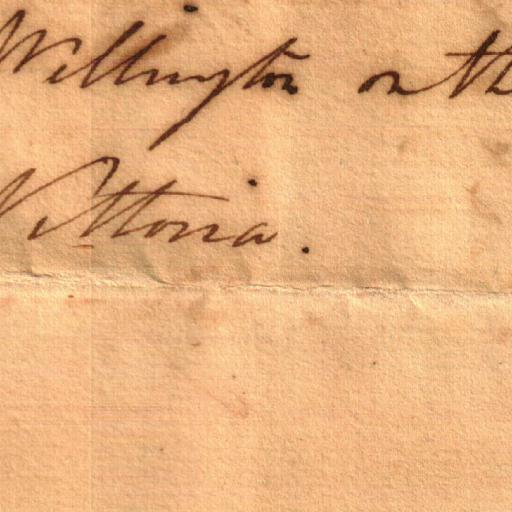 Wellington on th
Vittoria.